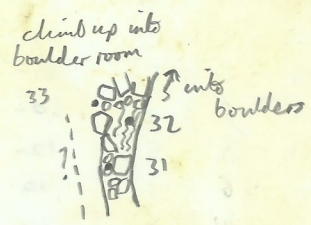 climb up into
boulder room
33
into
boulders
32
31
?